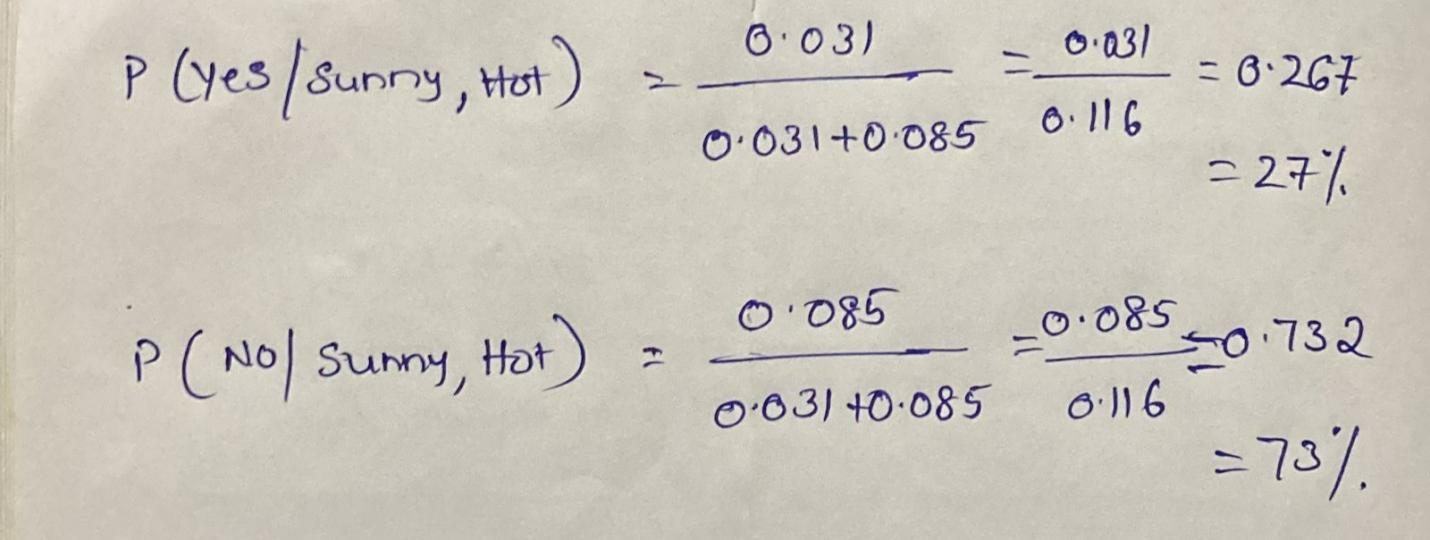 P (Yes/Sunny, Hot) = 0.031 / 0.031+0.085 = 0.031 / 0.116 = 0.267
= 27%
P (No/ Sunny, Hot) = 0.085 / 0.031+0.085 = 0.085 / 0.116 = 0.732
= 73%.